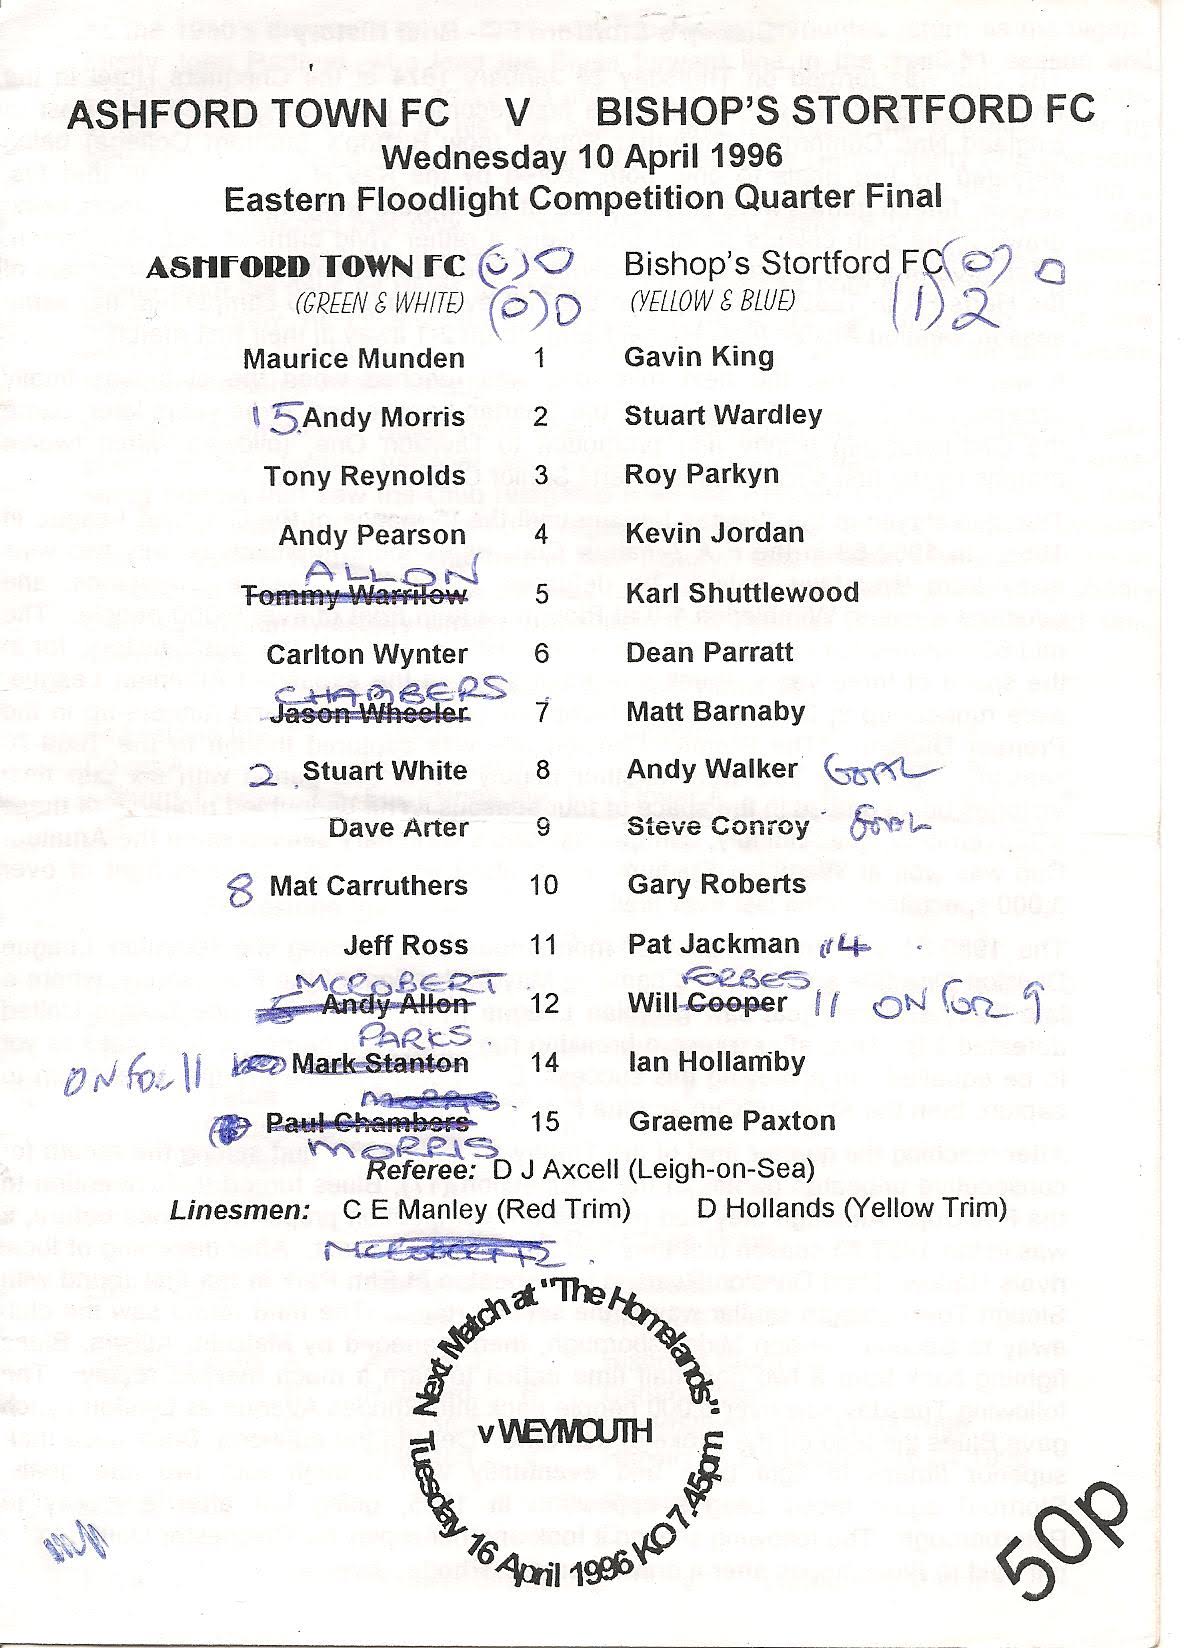 ASHFORD TOWN FC V BISHOP'S STORTFORD FC
Wednesday 10 April 1996
Eastern Floodlight Competition Quarter Final
ASHFORD TOWN FC (0) 0 Bishop's Stortford FC (0) 0
(GREEN & WHITE) (0) 0 (YELLOW & BLUE) (1) 2
Maurice Munden 1 Gavin King
15 Andy Morris 2 Stuart Wardley
Tony Reynolds 3 Roy Parkyn
Andy Pearson 4 Kevin Jordan
ALLON
Tommy Warrilow 5 Karl Shuttlewood
Carlton Wynter 6 Dean Parratt
CHAMBERS
Jason Wheeler 7 Matt Barnaby
2 Stuart White 8 Andy Walker GOAL
Dave Arter 9 Steve Conroy GOAL
8 Mat Carruthers 10 Gary Roberts
Jeff Ross 11 Pat Jackman 14
MCROBERT FORBES
Andy Allon 12 Will Cooper 11 ON FOR 9
PARKS
ON FOR 11 Mark Stanton 14 Ian Hollamby
MORRIS
Paul Chambers 15 Graeme Paxton
MORRIS
Referee: D J Axcell (Leigh-on-Sea)
Linesmen: C E Manley (Red Trim) D Hollands (Yellow Trim)
Next Match at "The Homelands"
v WEYMOUTH
Tuesday 16 April 1996 KO 7.45pm
50p